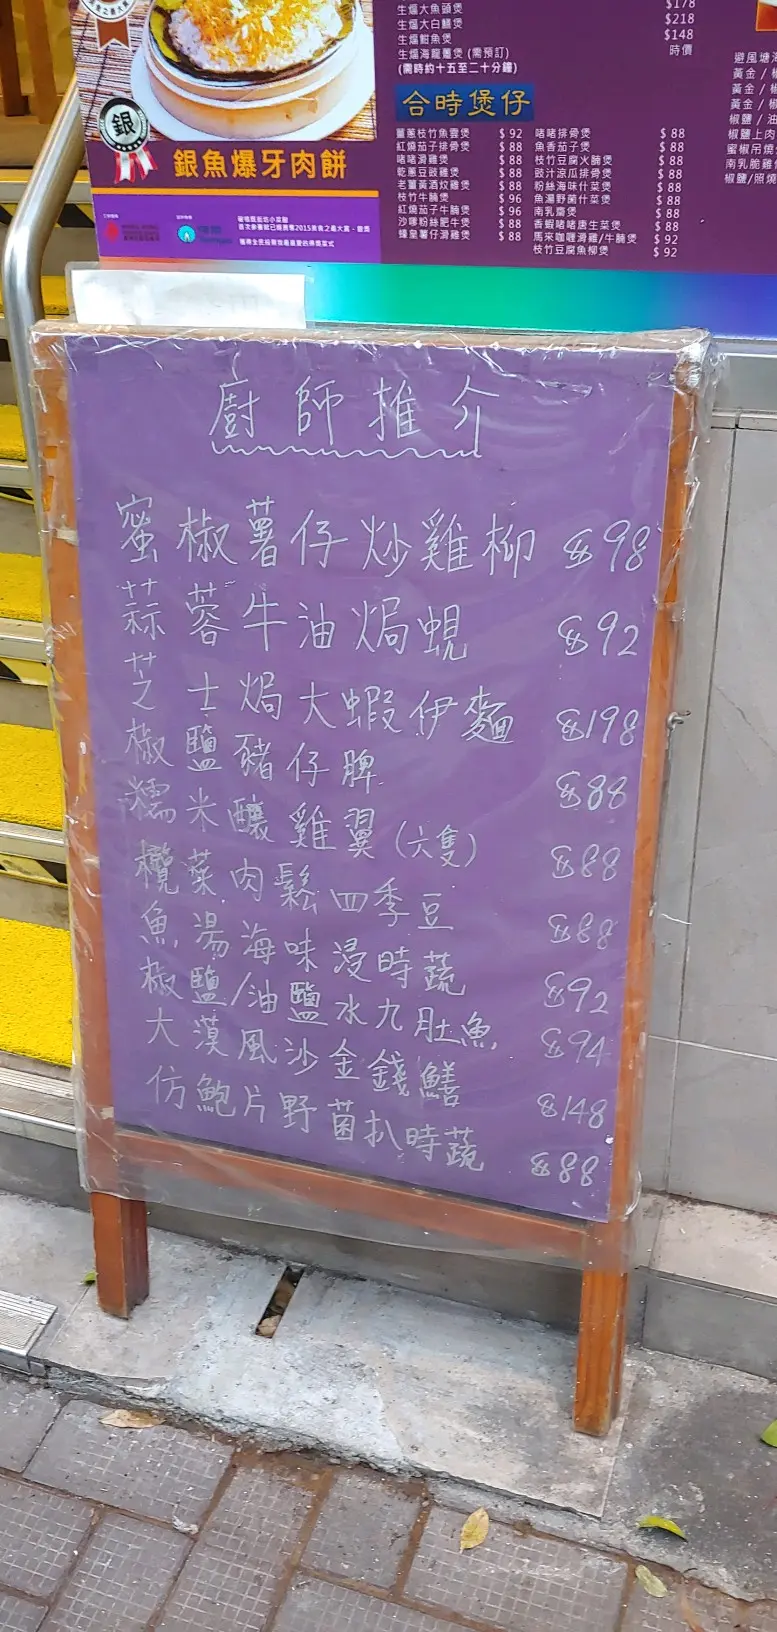 生焗大魚頭煲 $178
生焗大白鱔煲 $218
生焗鮰魚煲 $148
生焗海龍躉煲 (需預訂) 時價
(需時約十五至二十分鐘)
合時煲仔
薑蔥枝竹魚雲煲 $ 92
紅燒茄子排骨煲 $ 88
啫啫滑雞煲 $ 88
乾蔥豆豉雞煲 $ 88
老薑黃酒炆雞煲 $ 88
枝竹牛腩煲 $ 96
紅燒茄子牛腩煲 $ 96
沙嗲粉絲肥牛煲 $ 88
蠔皇薯仔滑雞煲 $ 88
啫啫排骨煲 $ 88
魚香茄子煲 $ 88
枝竹豆腐火腩煲 $ 88
豉汁涼瓜排骨煲 $ 88
粉絲海味什菜煲 $ 88
魚湯野菌什菜煲 $ 88
南乳齋煲 $ 88
香蝦啫啫唐生菜煲 $ 88
馬來咖喱滑雞/牛腩煲 $ 92
枝竹豆腐魚柳煲 $ 92
避風塘
黃金 / 椒
黃金 / 椒
黃金 / 椒
椒鹽 / 油
椒鹽上肉
蜜椒吊燒
南乳脆雞
椒鹽/照燒
銀
銀魚爆牙肉餅
廚師推介
蜜椒薯仔炒雞柳 $98
蒜蓉牛油焗蜆 $92
芝士焗大蝦伊麵 $198
椒鹽豬仔脾 $88
糯米釀雞翼(六隻) $88
欖菜肉鬆四季豆 $88
魚湯海味浸時蔬 $92
椒鹽/油鹽水九肚魚 $94
大漠風沙金錢鱔 $148
仿鮑片野菌扒時蔬 $88